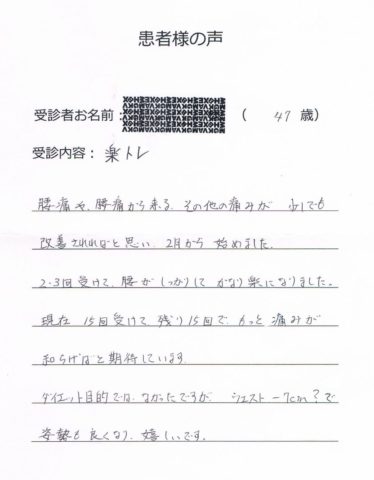 患者様の声
受診者お名前: ( 47 歳)
受診内容: 楽トレ
腰痛や、腰痛から来る、その他の痛みが 少しでも
改善されればなと思い、2月から 始めました。
2・3回受けて、腰が しっかりして かなり楽になりました。
現在 15回受けて、残り15回で、もっと 痛みが
和らげばなと期待しています。
ダイエット目的では、なかったですが、ウェスト -7cm?で
姿勢も良くなり、嬉しいです。